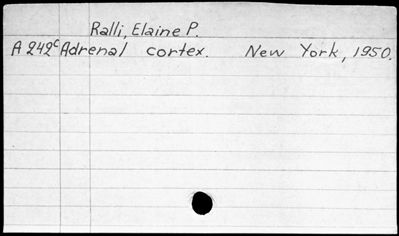 Ralli, Elaine P.
A 242c Adrenal cortex. New York, 1950.